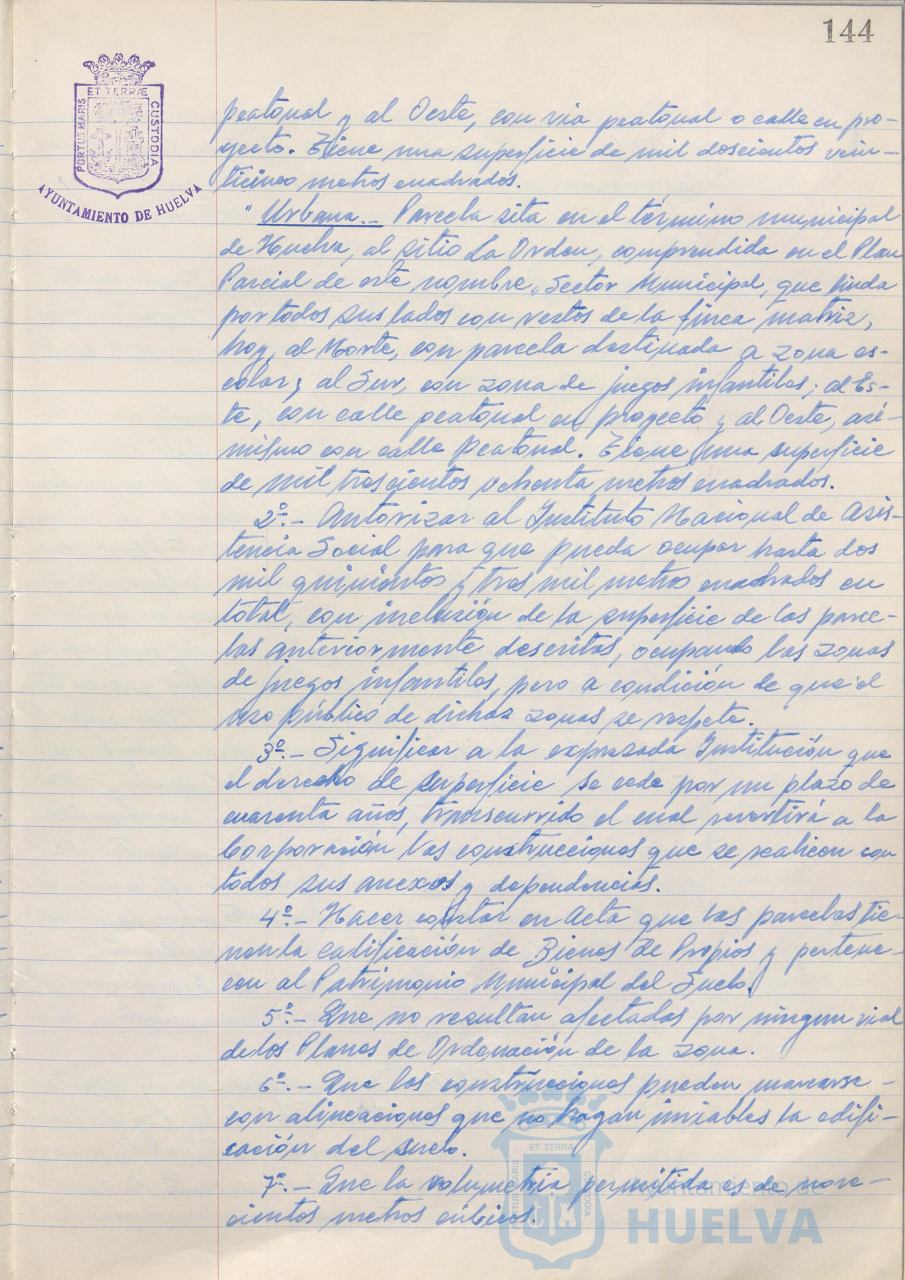 144
ET TERRÆ
PORTUS MARIS
CUSTODIA
AYUNTAMIENTO DE HUELVA
peatonal y al Oeste, con via peatonal o calle en pro-
yecto. Tiene una superficie de mil doscientos vein-
ticinco metros cuadrados.
" Urbana.- Parcela sita en el término municipal
de Huelva, al sitio La Orden, comprendida en el Plan
Parcial de este nombre, Sector Municipal, que linda
por todos sus lados con restos de la finca matriz,
hoy, al Norte, con parcela destinada a zona es-
colar; al Sur, con zona de juegos infantiles; al Es-
te, con calle peatonal en proyecto y al Oeste, asi-
mismo con calle peatonal. Tiene una superficie
de mil trescientos ochenta metros cuadrados.
2º.- Autorizar al Instituto Nacional de Asis-
tencia Social para que pueda ocupar hasta dos
mil quinientos y tres mil metros cuadrados en
total, con inclusión de la superficie de las parce-
las anteriormente descritas, ocupando las zonas
de juegos infantiles, pero a condición de que el
uso público de dichas zonas se respete.
3º.- Significar a la expresada Institución que
el derecho de superficie se cede por un plazo de
cuarenta años, transcurrido el cual revertirá a la
Corporación las construcciones que se realicen con
todos sus anexos y dependencias.
4º.- Hacer constar en Acta que las parcelas tie-
nen la calificación de Bienes de Propios y pertene-
cen al Patrimonio Municipal del Suelo.
5º.- Que no resultan afectadas por ningun vial
de los Planes de Ordenación de la zona.
6º.- Que las construcciones pueden marcarse -
con alineaciones que no hagan inviables la edifi-
cación del suelo.
7º.- Que la volumetría permitida es de nove-
cientos metros cúbicos.
ET TERRÆ
PORTUS MARIS
CUSTODIA
Ayuntamiento de
HUELVA